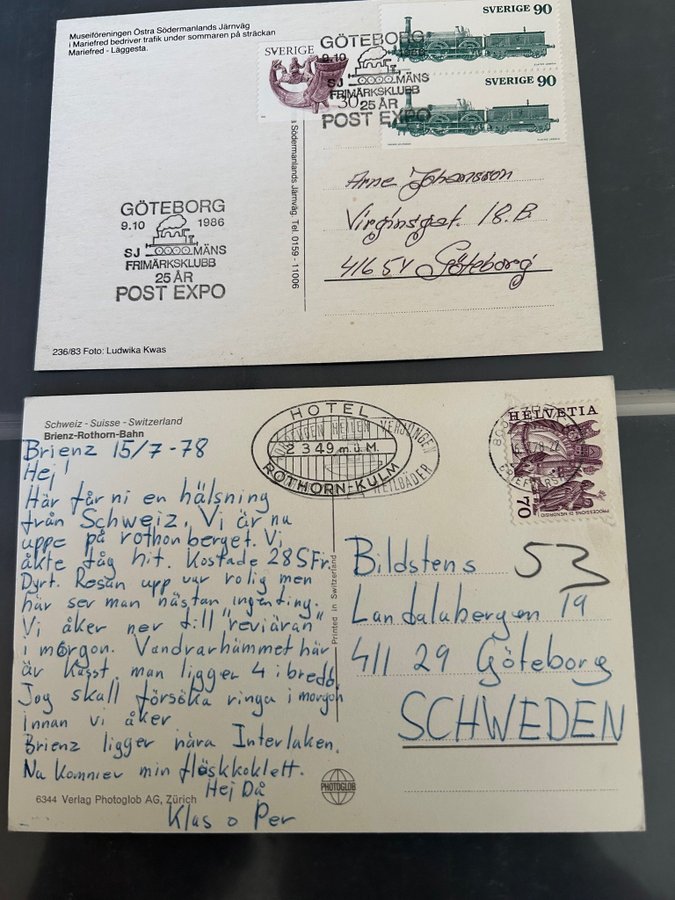 Museiföreningen Östra Södermanlands Järnväg
i Mariefred bedriver trafik under sommaren på sträckan
Mariefred - Läggesta.
SVERIGE
30
SVERIGE 90
SVERIGE 90
GÖTEBORG
9.10 1986
SJ MÄNS
FRIMÄRKSKLUBB
25 ÅR
POST EXPO
Södermanlands Järnväg. Tel. 0159 - 11006
Arne Johansson
Virginsgat. 18.B
416 54 Göteborg
GÖTEBORG
9.10 1986
SJ MÄNS
FRIMÄRKSKLUBB
25 ÅR
POST EXPO
236/83 Foto: Ludwika Kwas
Schweiz - Suisse - Switzerland
Brienz-Rothorn-Bahn
HOTEL
2349 m.ü.M.
ROTHORN-KULM
HEILBÄDER
HELVETIA
70
PROCESSIONS DI MENDRISIO
Brienz 15/7-78
Hej!
Här får ni en hälsning
från Schweiz. Vi är nu
uppe på rothornberget. Vi
åkte tåg hit. Kostade 28SFr.
Dyrt. Resan upp var rolig men
här ser man nästan ingenting.
Vi åker ner till "reviäran"
i morgon. Vandrarhämmet här
är kasst, man ligger 4 i bredd.
Jag skall försöka ringa i morgon
innan vi åker
Brienz ligger nära Interlaken.
Nu kommer min fläskkoklett.
Hej Då
Klas o Per
Printed in Switzerland
53
Bildstens
Landalabergen 19
411 29 Göteborg
SCHWEDEN
PHOTOGLOB
6344 Verlag Photoglob AG, Zürich